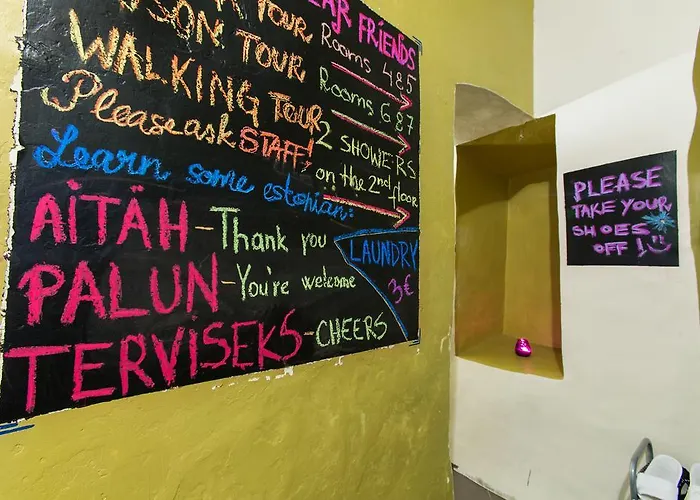 TOUR
SON TOUR
WALKING TOUR
Please ask STAFF!
Learn some estonian:
AITÄH - Thank you
PALUN - You're welcome
TERVISEKS - CHEERS
FRIENDS
Rooms 4&5
Rooms 6&7
2 SHOWERS
on the 2nd floor
LAUNDRY
3€
PLEASE
TAKE YOUR
SHOES
OFF!